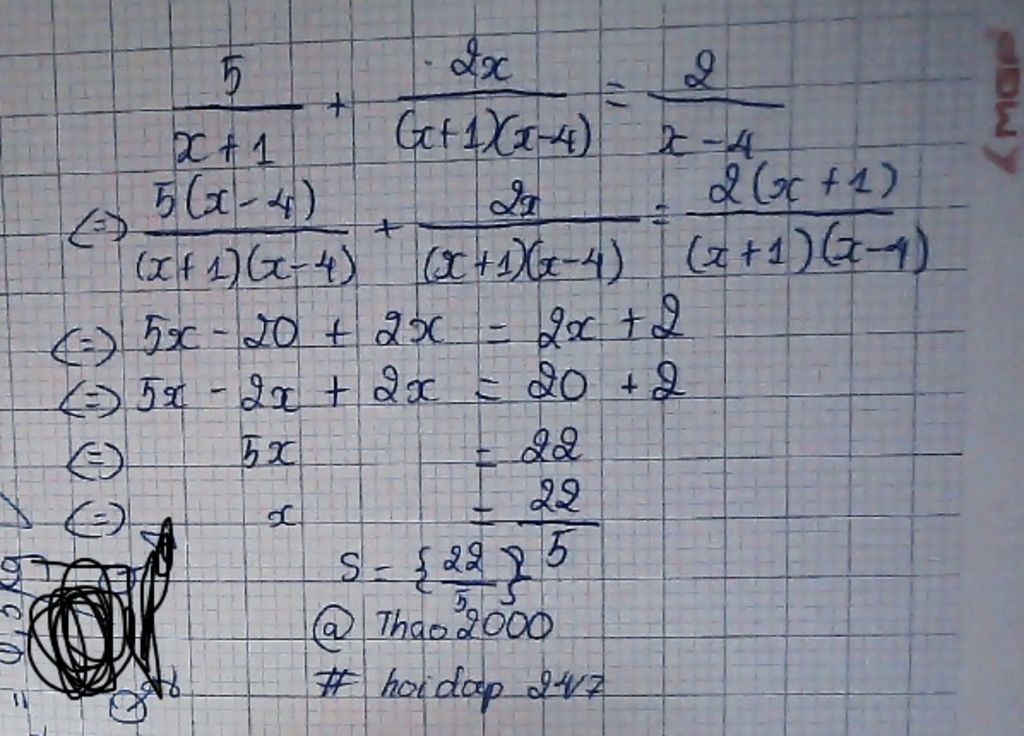 5/(x+1) + 2x/((x+1)(x-4)) = 2/(x-4)
(=) 5(x-4)/((x+1)(x-4)) + 2x/((x+1)(x-4)) = 2(x+1)/((x+1)(x-4))
(=) 5x - 20 + 2x = 2x + 2
(=) 5x - 2x + 2x = 20 + 2
(=) 5x = 22
(=) x = 22/5
S = {22/5}
@ Thao 2000
# hoidap 247